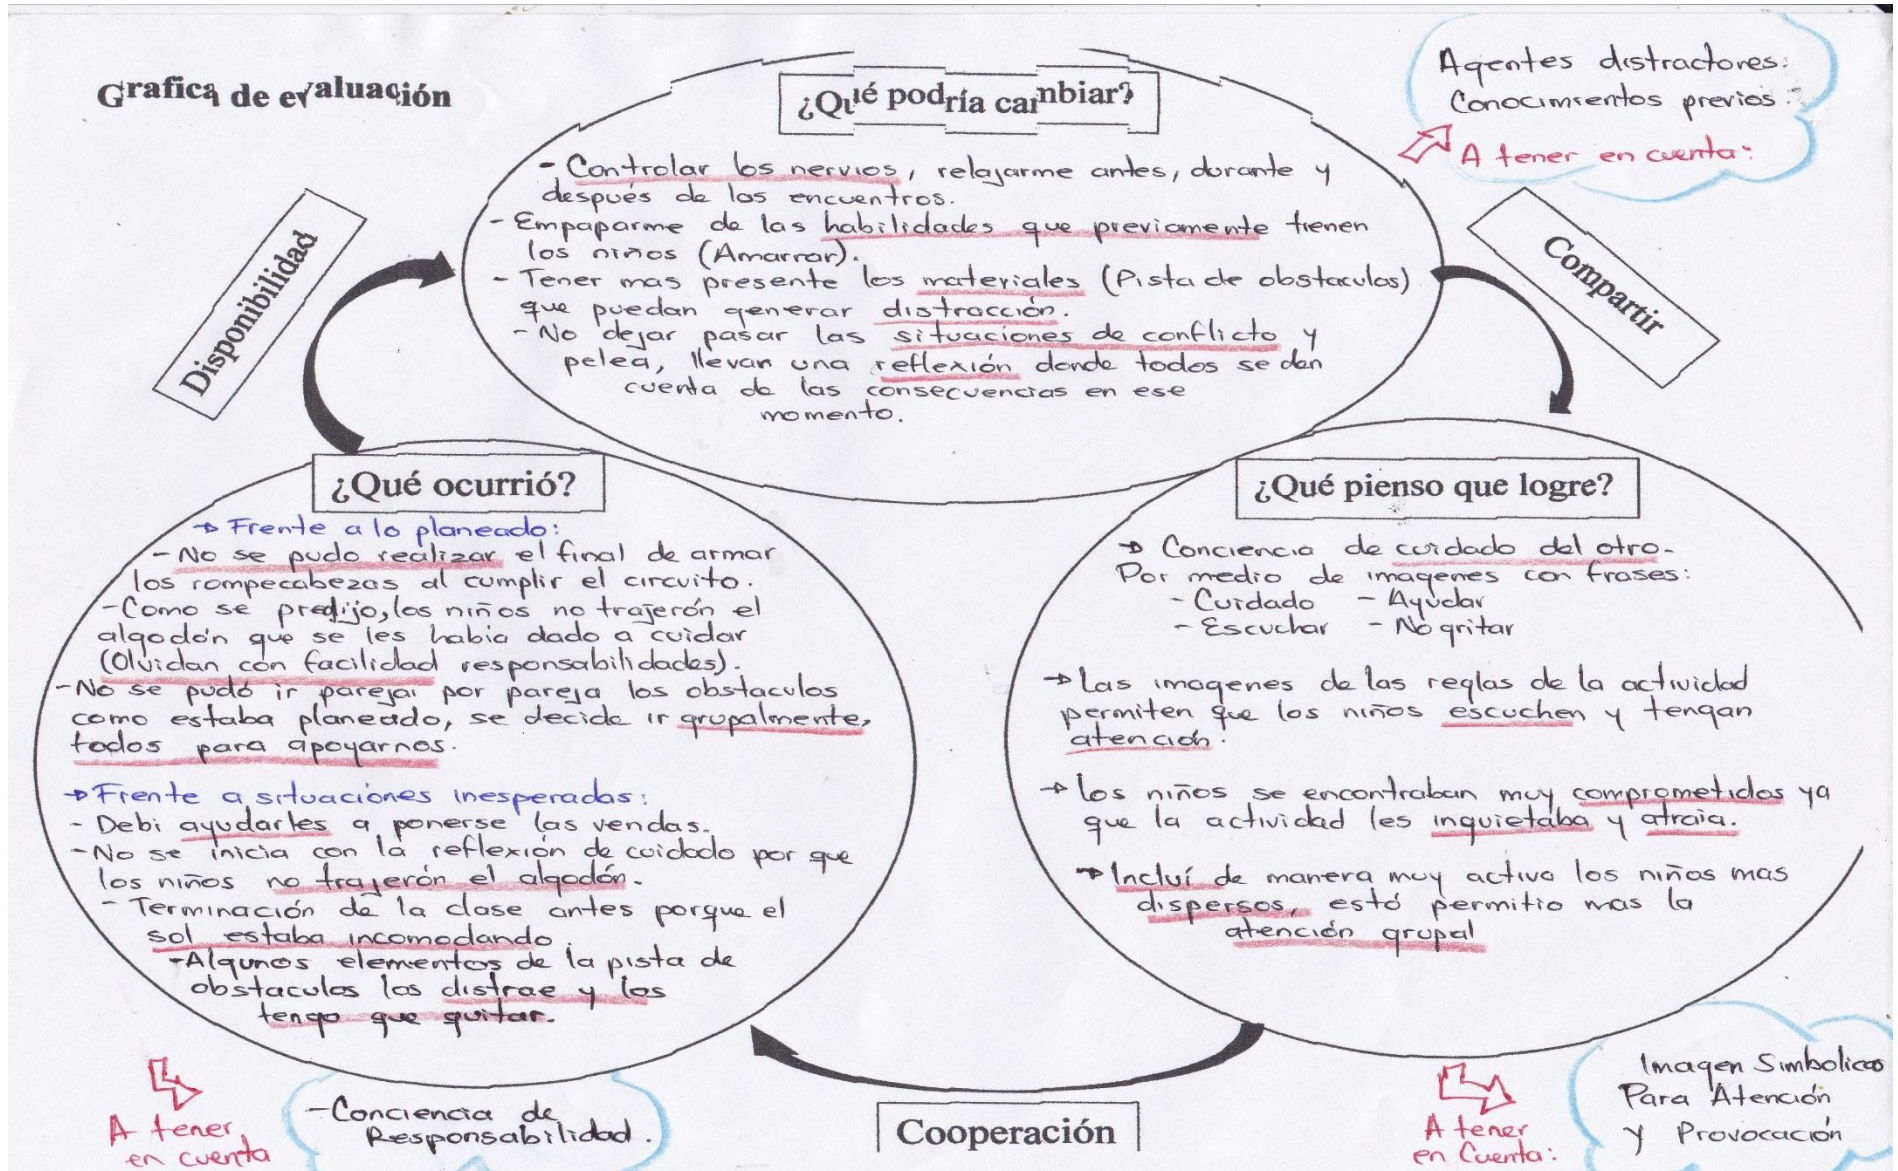 Grafica de evaluación
¿Qué podría cambiar?
- Controlar los nervios, relajarme antes, durante y
después de los encuentros.
- Empaparme de las habilidades que previamente tienen
los niños (Amarrar).
- Tener mas presente los materiales (Pista de obstaculos)
que puedan generar distracción.
- No dejar pasar las situaciones de conflicto y
pelea, llevan una reflexión donde todos se dan
cuenta de las consecuencias en ese
momento.
Agentes distractores.
Conocimientos previos.
A tener en cuenta:
Disponibilidad
Compartir
¿Qué ocurrió?
→ Frente a lo planeado:
- No se pudo realizar el final de armar
los rompecabezas al cumplir el circuito.
- Como se predijo, los niños no trajerón el
algodón que se les había dado a cuidar
(Olvidan con facilidad responsabilidades).
- No se pudó ir pareja por pareja los obstaculos
como estaba planeado, se decide ir grupalmente,
todos para apoyarnos.
→ Frente a situaciones inesperadas:
- Debi ayudarles a ponerse las vendas.
- No se inicia con la reflexión de cuidado por que
los niños no trajerón el algodón.
- Terminación de la clase antes porque el
sol estaba incomodando.
- Algunos elementos de la pista de
obstaculos los distrae y los
tengo que quitar.
A tener
en cuenta
- Conciencia de
Responsabilidad.
¿Qué pienso que logre?
→ Conciencia de cuidado del otro.
Por medio de imagenes con frases:
- Cuidado - Ayudar
- Escuchar - No gritar
→ Las imagenes de las reglas de la actividad
permiten que los niños escuchen y tengan
atención.
→ los niños se encontraban muy comprometidos ya
que la actividad les inquietaba y atraia.
→ Incluí de manera muy activa los niños mas
dispersos, estó permitio mas la
atención grupal
Cooperación
A tener
en Cuenta:
Imagen Simbolicas
Para Atención
y Provocación